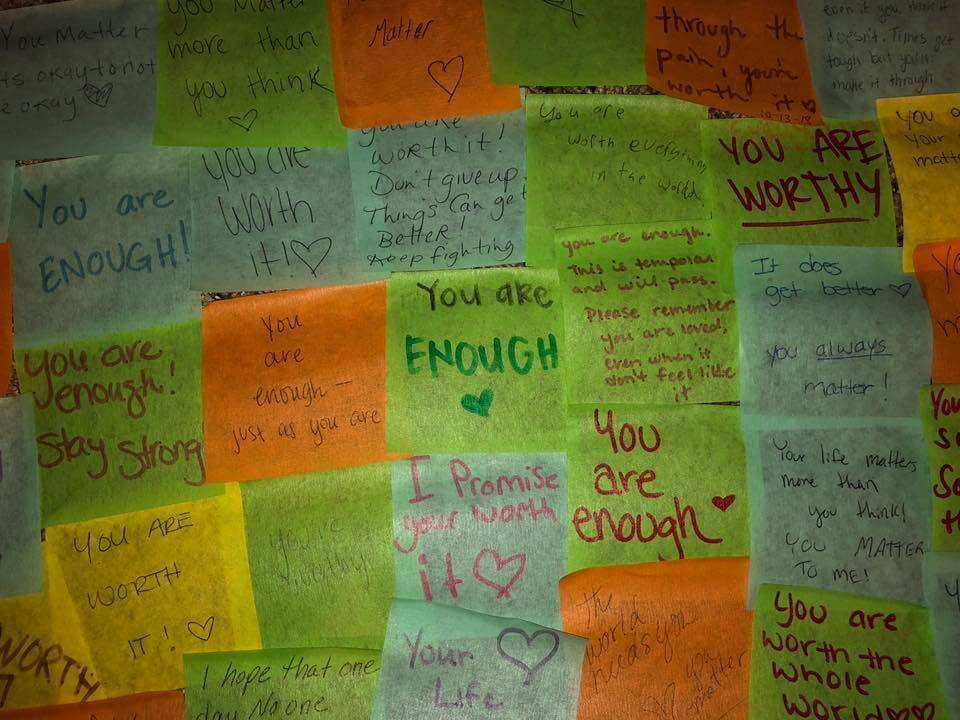 You Matter
its okay to not
be okay
You Matter
more than
you think
Matter
through the
pain, you're
worth it
10-13-18
even if you think it
doesn't. Times get
tough but you'll
make it through
You are
ENOUGH!
you are
worth
it!
you are
worth it!
Don't give up.
Things can get
Better!
Keep fighting
You are
worth everything
in the world
YOU ARE
WORTHY
you
your
matt
you are enough.
This is temporary
and will pass.
Please remember
you are loved,
even when it
don't feel like
it
It does
get better
you always
matter!
You are
enough!
Stay Strong
You
are
enough —
just as you are
You are
ENOUGH
You
are
enough
Your life matters
more than
you think!
YOU MATTER
TO ME!
YOU ARE
WORTH
IT!
You're
worthy
I Promise
your worth
it
the
world
needs you
You are
worth the
whole
world
WORTH
I hope that one
day No one
Your
Life